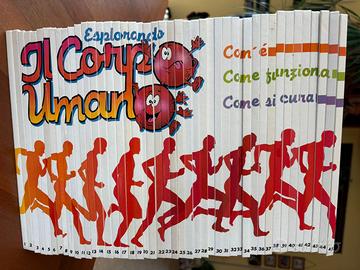 Esplorando
Il Corpo
Umano
Com'é
Come funziona
Come si cura
1 2 3 4 5 6 7 8 9 10 11 12 13 14 15 16 17 18 19 20 21 22 23 24 25 26 27 28 29 30 31 32 33 34 35 36 37 38 39 40 41 42 43 44 45